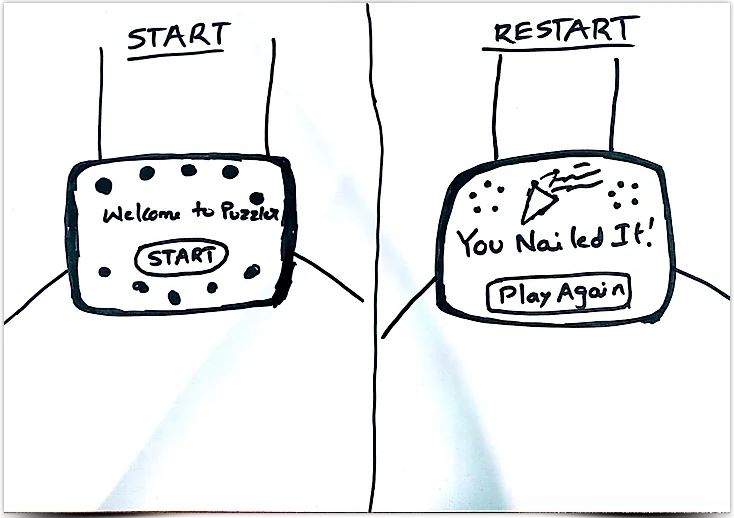 START
Welcome to Puzzler
START
RESTART
You Nailed It!
Play Again